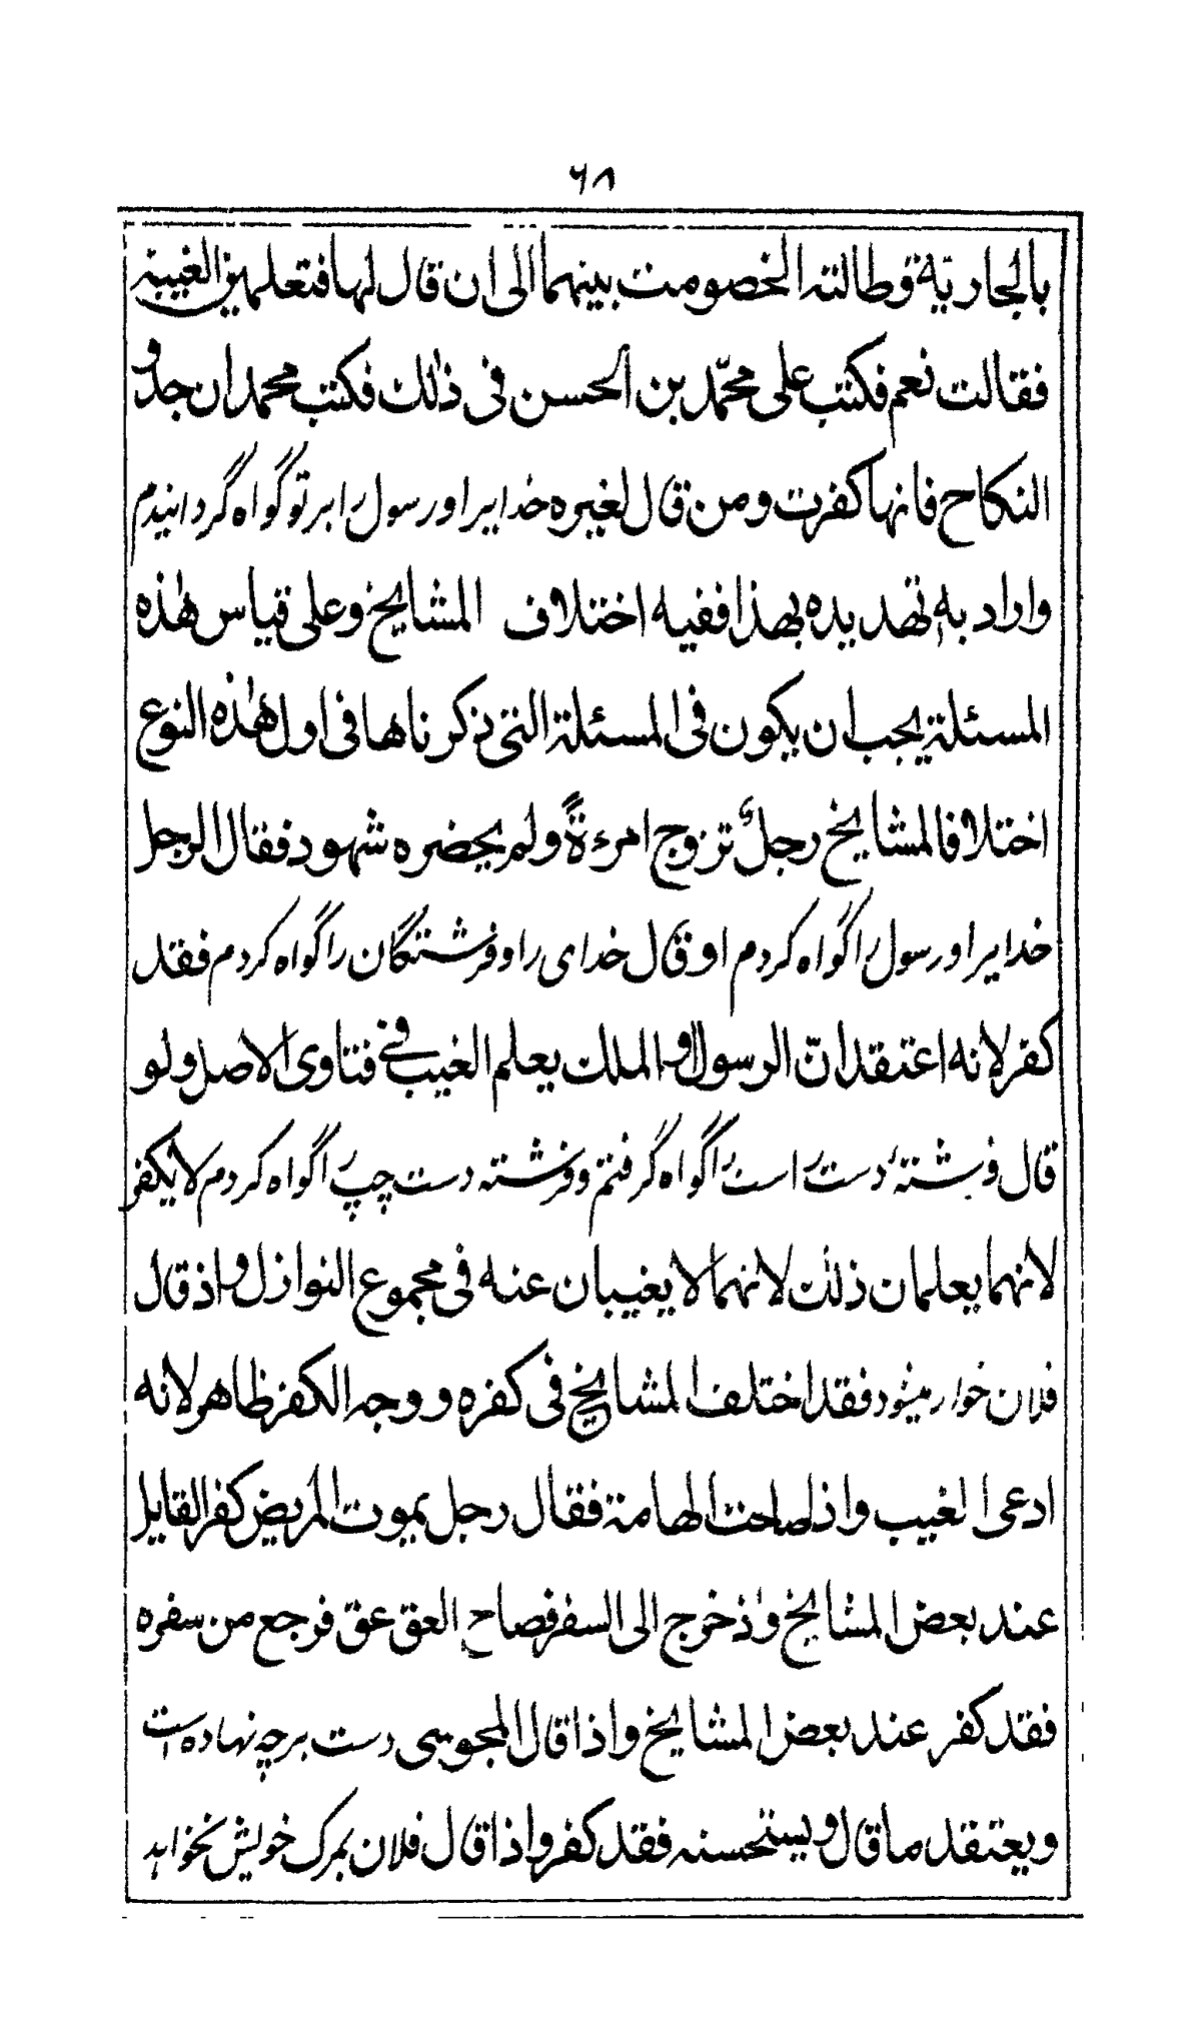 ٦٨
بالجارية وطالت الخصومت بينهما الى ان قال لها فتعلمين الغيبة
فقالت نعم فكتب على محمّد بن الحسن فى ذٰلك فكتب محمد ان جدد
النكاح فانها كفرت ومن قال لغيره خدايرا ورسول را بر تو گواه گردانيدم
واراد به تهديده بهذا ففيه اختلاف المشايخ وعلى قياس هٰذه
المسئلة يجب ان يكون فى المسئلة التى ذكرناها فى اول هٰذه النوع
اختلافا لمشايخ رجلٌ تزوج امرءةً ولم يحضره شهود فقال الرجل
خدايرا ورسول را گواه كردم او قال خداى را وفرشتگان را گواه كردم فقد
كفر لانه اعتقد انّ الرسول والملك يعلم الغيب فى فتاوى الاصل ولو
قال فرشتۀ دست راست را گواه گرفتم وفرشته دست چپ را گواه كردم لا يكفر
لانهما يعلمان ذلك لانهما لا يغيبان عنه فى مجموع النوازل واذ قال
فلان خوار ميشود فقد اختلف المشايخ فى كفره ووجه الكفر ظاهر لانه
ادعى الغيب واذ صاحت الهامة فقال رجل يموت المريض كفر القايل
عند بعض المشايخ واذ خرج الى السفر فصاح العقعق فرجع من سفره
فقد كفر عند بعض المشايخ واذا قال المجوسى دست برچه نهاده است
ويعتقد ما قال ويستحسنه فقد كفر واذا قال فلان بمرگ خويش نخواهد